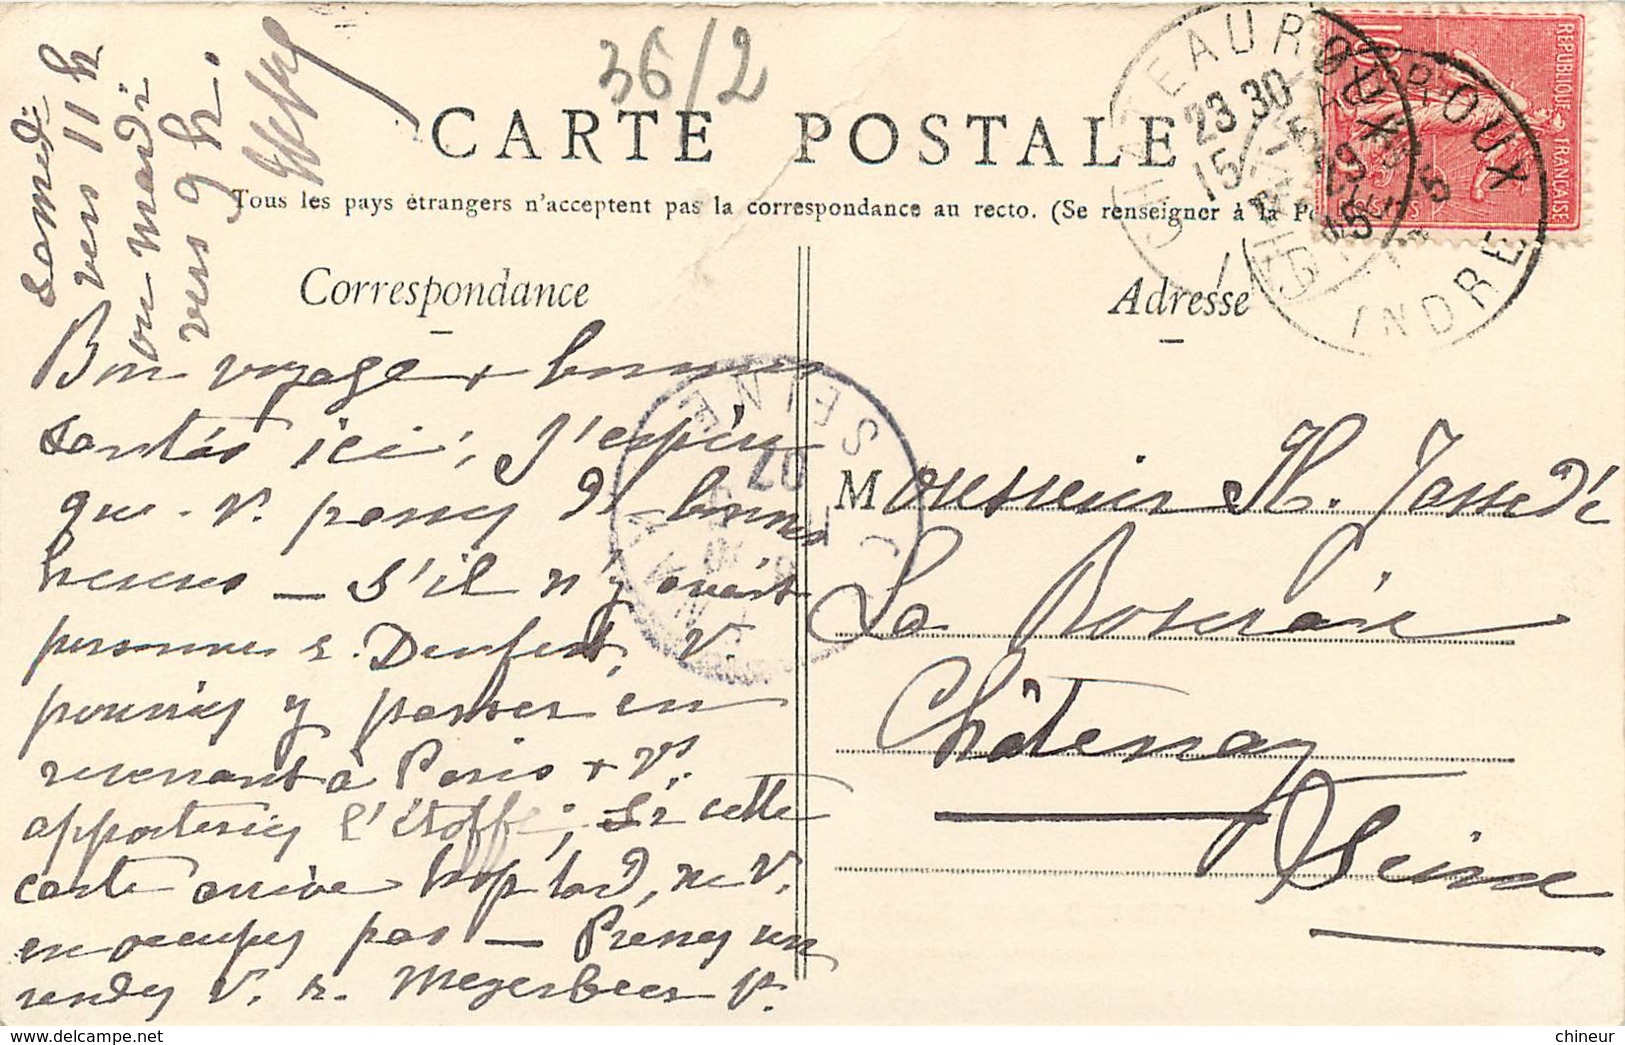 36/2
CARTE POSTALE
Tous les pays étrangers n'acceptent pas la correspondance au recto. (Se renseigner à la Po
Correspondance
Adresse
Bon voyage + bonnes
santés ici ; J'espère
que V. passez d bonnes
heures — S'il n'y avait
personne r. Denfert, V.
pourriez y passer en
revenant à Paris + V.
apporteriez l'étoffe ; Si cette
carte arrive trop tard, ne V.
en occupez pas — Prenez un
rendez V. r. Meyerbeer p.
samedi
vers 11 h
ou mardi
vers 9 h.
Monsieur H. Jassedé
La Roseraie
Châtenay
Seine
REPUBLIQUE FRANÇAISE
10
POSTES
CHATEAUROUX
23 30
15 -5
INDRE
SEINE
07
chineur